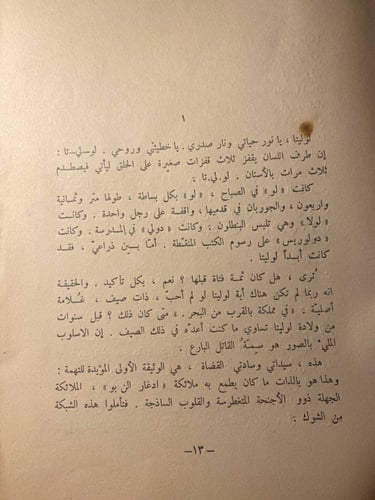 ١
لوليتا ، يا نور حياتي ونار صدري . يا خطيئتي وروحي . لو-لي-تا :
إن طرف اللسان يقفز ثلاث قفزات صغيرة على الحلق ليأتي فيصطدم
ثلاث مرات بالأسنان . لو . لي . تا .
كانت « لو » في الصباح ، « لو » بكل بساطة ، طولها متر وثمانية
واربعون ، والجوربان في قدميها ، واقفة على رجل واحدة . وكانت
« لولا » وهي تلبس البنطلون . وكانت « دولي » في المدرسة . وكانت
« دولوريس » على رسوم الكتب المنقطة . أما بين ذراعيّ ، فقد
كانت أبداً لوليتا .
تُرى ، هل كان ثمة فتاة قبلها ؟ نعم ، بكل تأكيد . والحقيقة
انه ربما لم تكن هناك أية لوليتا لو لم أحبّ ، ذات صيف ، غلامة
أصلية . « في مملكة بالقرب من البحر » . متى كان ذلك ؟ قبل سنوات
من ولادة لوليتا تساوي ما كنت أعدّه في ذلك الصيف . إن الاسلوب
المليء بالصور هو سيمَةُ القاتل البارع .
هذه ، سيداتي وسادتي القضاة ، هي الوثيقة الأولى المؤيدة للتهمة :
وهذا هو بالذات ما كان يطمع به ملائكة « ادغار الن بو » ، الملائكة
الجهلة ذوو الأجنحة المتغطرسة والقلوب الساذجة . فتأملوا هذه الشبكة
من الشوك :
-١٣-